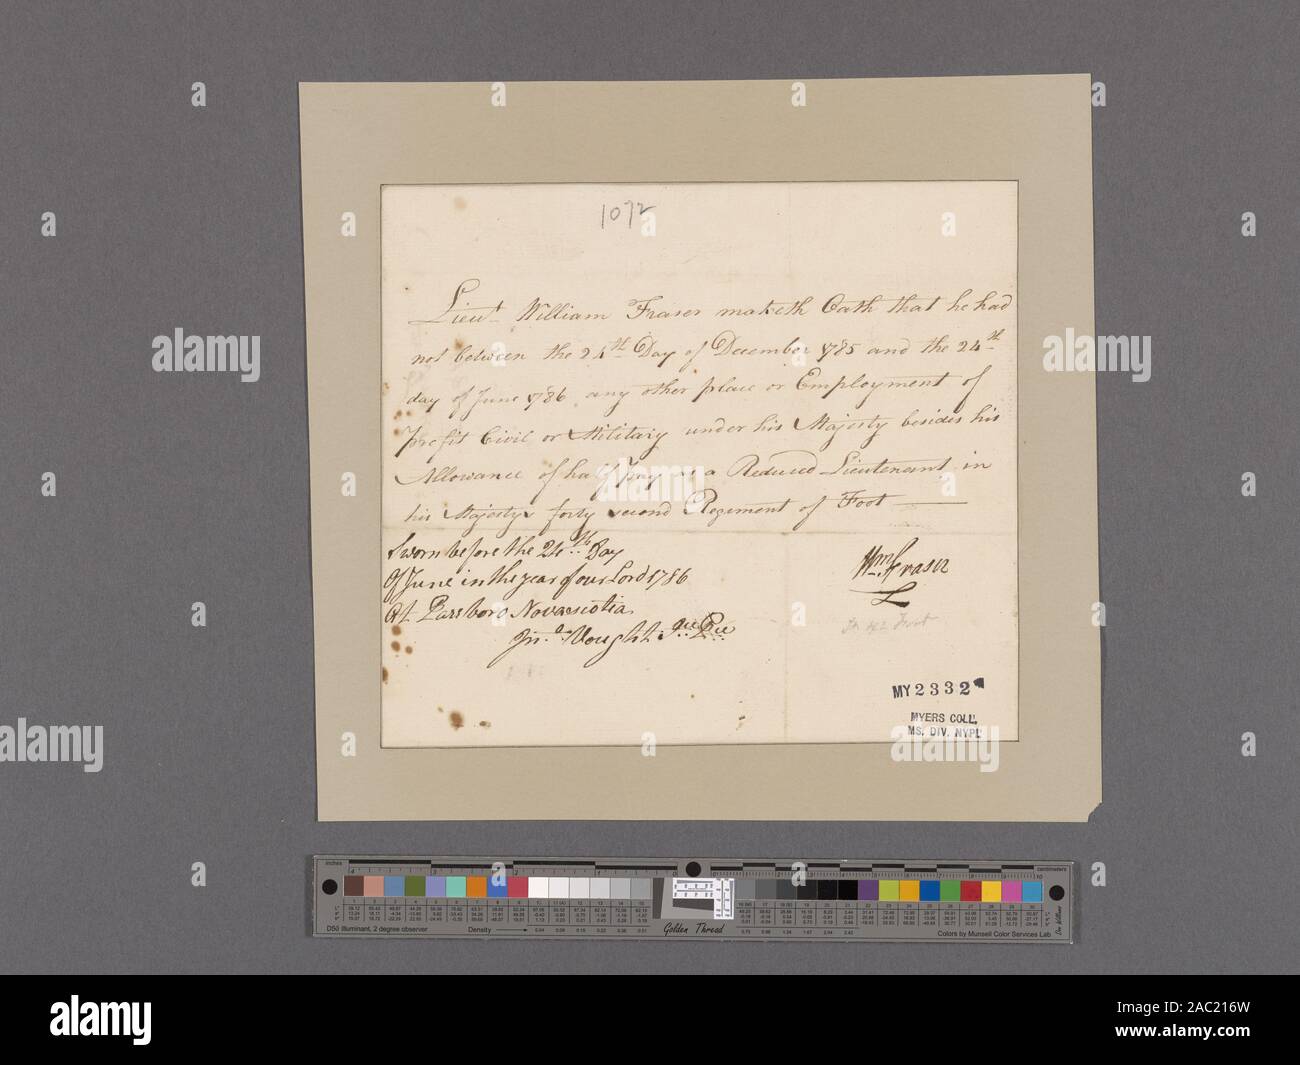 1072
Lieut. William Fraser maketh Oath that he had
not between the 24th Day of December 1785 and the 24th
day of June 1786 any other place or Employment of
profit Civil or Military under his Majesty besides his
Allowance of half Pay as a Reduced Lieutenant in
his Majestys forty second Regiment of Foot
Sworn before the 24th Day
Of June in the year of our Lord 1786
At Parsboro Novascotia
Jno. Vought
Wm. Fraser
L
MY 2332
MYERS COLL.
MS. DIV. NYPL
inches
centimeters
D50 Illuminant, 2 degree observer
Density
Golden Thread
Colors by Munsell Color Services Lab
a
alamy
alamy
Image ID: 2AC216W
www.alamy.com